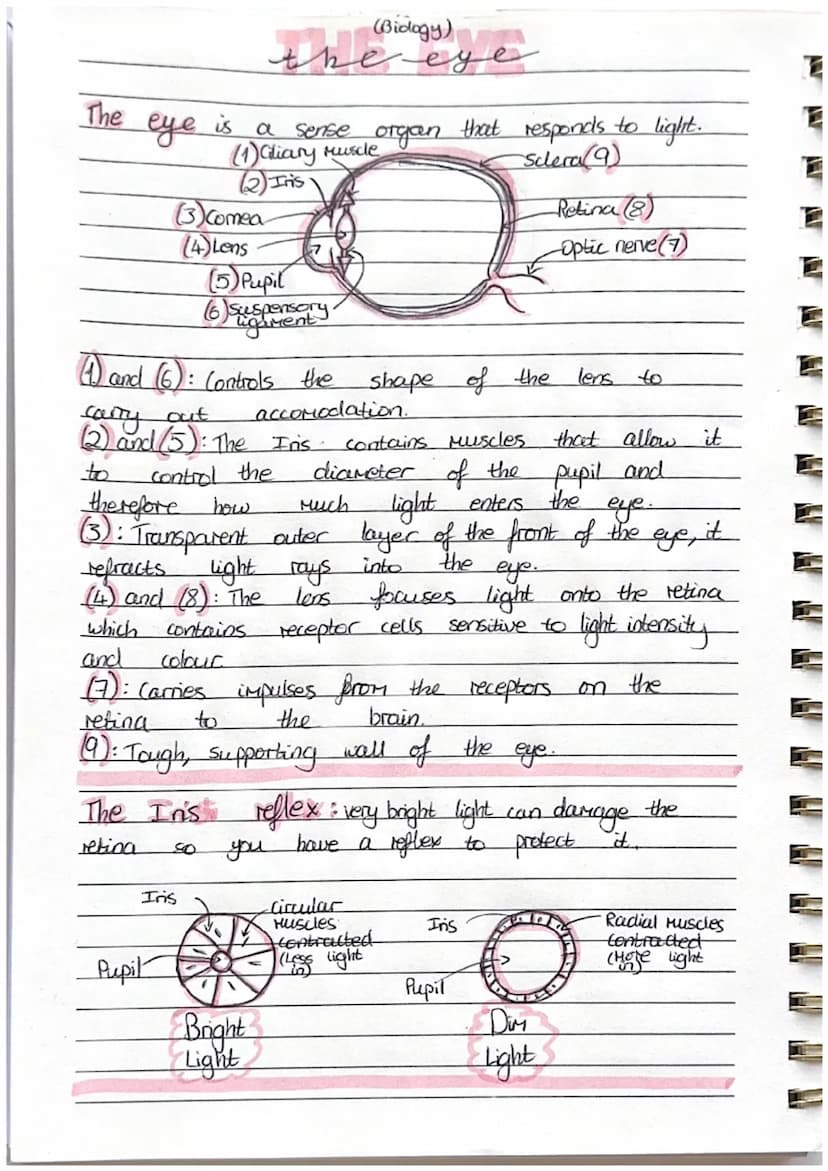 (Biology)
THE EYE
the eye
The eye is a sense organ that responds to light.
(1) Ciliary Muscle
(2) Iris
(3) Cornea
(4) Lens
(5) Pupil
(6) Suspensory
ligament
Sclera (9)
Retina (8)
Optic nerve (7)
(1) and (6): Controls the shape of the lens to
carry out accomodation.
(2) and (5): The Iris contains muscles that allow it
to control the diameter of the pupil and
therefore how much light enters the eye.
(3): Transparent outer layer of the front of the eye, it
refracts light rays into the eye.
(4) and (8): The lens focuses light onto the retina
which contains receptor cells sensitive to light intensity
and colour
(7): Carries impulses from the receptors on the
retina to the brain.
(9): Tough, supporting wall of the eye.
The Iris reflex: very bright light can damage the
retina so you have a reflex to protect it.
Iris
Pupil
Circular
Muscles
contracted
(Less light
in)
Bright
Light
Iris
Pupil
Radial Muscles
contracted
(More light
in)
Dim
Light